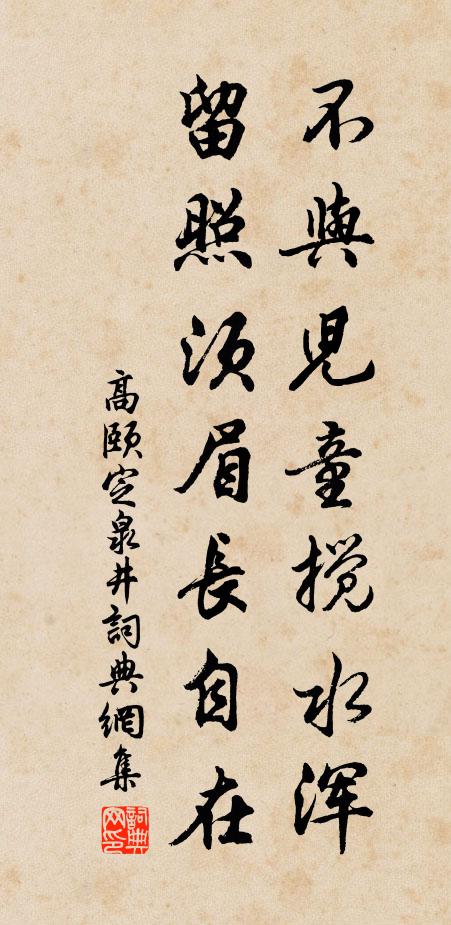 不與児童攪水浑
留照须眉長自在
高頤定泉井詞典網集
詞典網印